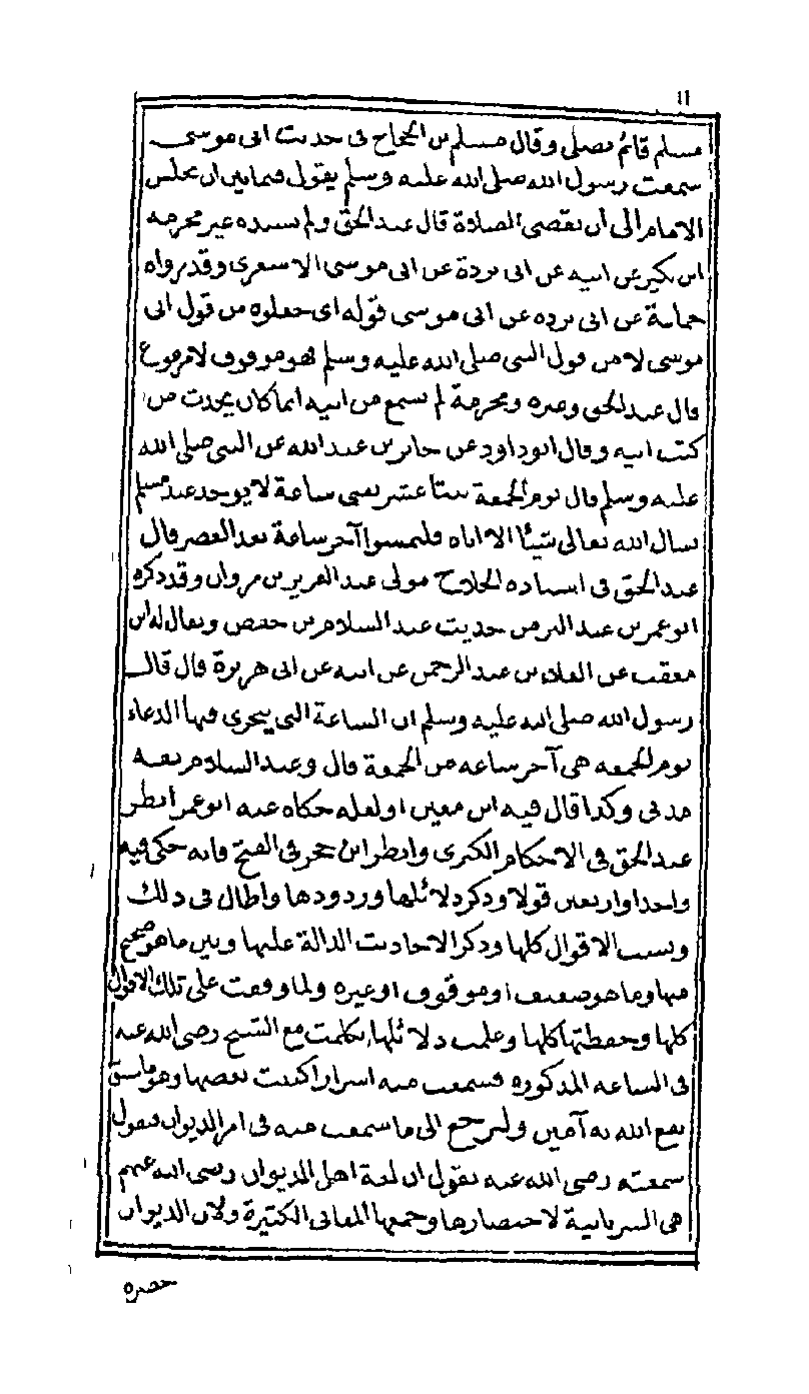 ١١
مسلم قائم يصلى وقال مسلم بن الحجاج فى حديث ابى موسى
سمعت رسول الله صلى الله عليه وسلم يقول فيما بين ان يجلس
الامام الى ان يقضى الصلاة قال عبد الحق ولم يسنده غير مخرمة
ابن بكير عن ابيه عن ابى بردة عن ابى موسى الاشعرى وقد رواه
جماعة عن ابى برده عن ابى موسى قوله اى جعلوه من قول ابى
موسى لا من قول النبى صلى الله عليه وسلم فهو موقوف لا مرفوع
قال عبد الحق وغيره ومخرمة لم يسمع من ابيه انما كان يحدث من
كتب ابيه وقال ابو داود عن جابر بن عبد الله عن النبى صلى الله
عليه وسلم قال يوم الجمعة ثنتا عشر يعنى ساعة لا يوجد عبد مسلم
يسال الله تعالى شيئا الا اتاه فليلتمسوا آخر ساعة بعد العصر قال
عبد الحق فى اسناده الجلاح مولى عبد العزيز بن مروان وقد ذكره
ابو عمر بن عبد البر من حديث عبد السلام بن حفص ويقال له ابن
معقب عن العلاء بن عبد الرحمن عن ابيه عن ابى هريرة قال قال
رسول الله صلى الله عليه وسلم ان الساعة التى يتحرى فيها الدعاء
يوم الجمعه هى آخر ساعه من الجمعة قال وعبد السلام ثقة
مدنى وكذا قال فيه ابن معين او لعله حكاه عنه ابو عمر انظر
عبد الحق فى الاحكام الكبرى وانظر ابن حجر فى الفتح فانه حكى فيه
واحدا واربعين قولا وذكر دلائلها وردودها واطال فى ذلك
ونسب الاقوال كلها وذكر الاحاديث الدالة عليها وبين ما هو صحيح
منها وما هو ضعيف او موقوف او غيره ولما وقفت على تلك الاقوال
كلها وحفظتها كلها وعلمت دلائلها تكلمت مع الشيخ رضى الله عنه
فى الساعه المذكوره فسمعت منه اسرارا كتبت بعضها وهو ما سبق
نفع الله به آمين ولنرجع الى ما سمعت منه فى امر الديوان فنقول
سمعته رضى الله عنه يقول ان لغة اهل الديوان رضى الله عنهم
هى السريانية لاختصارها وجمعها المعانى الكثيرة ولان الديوان
حضره